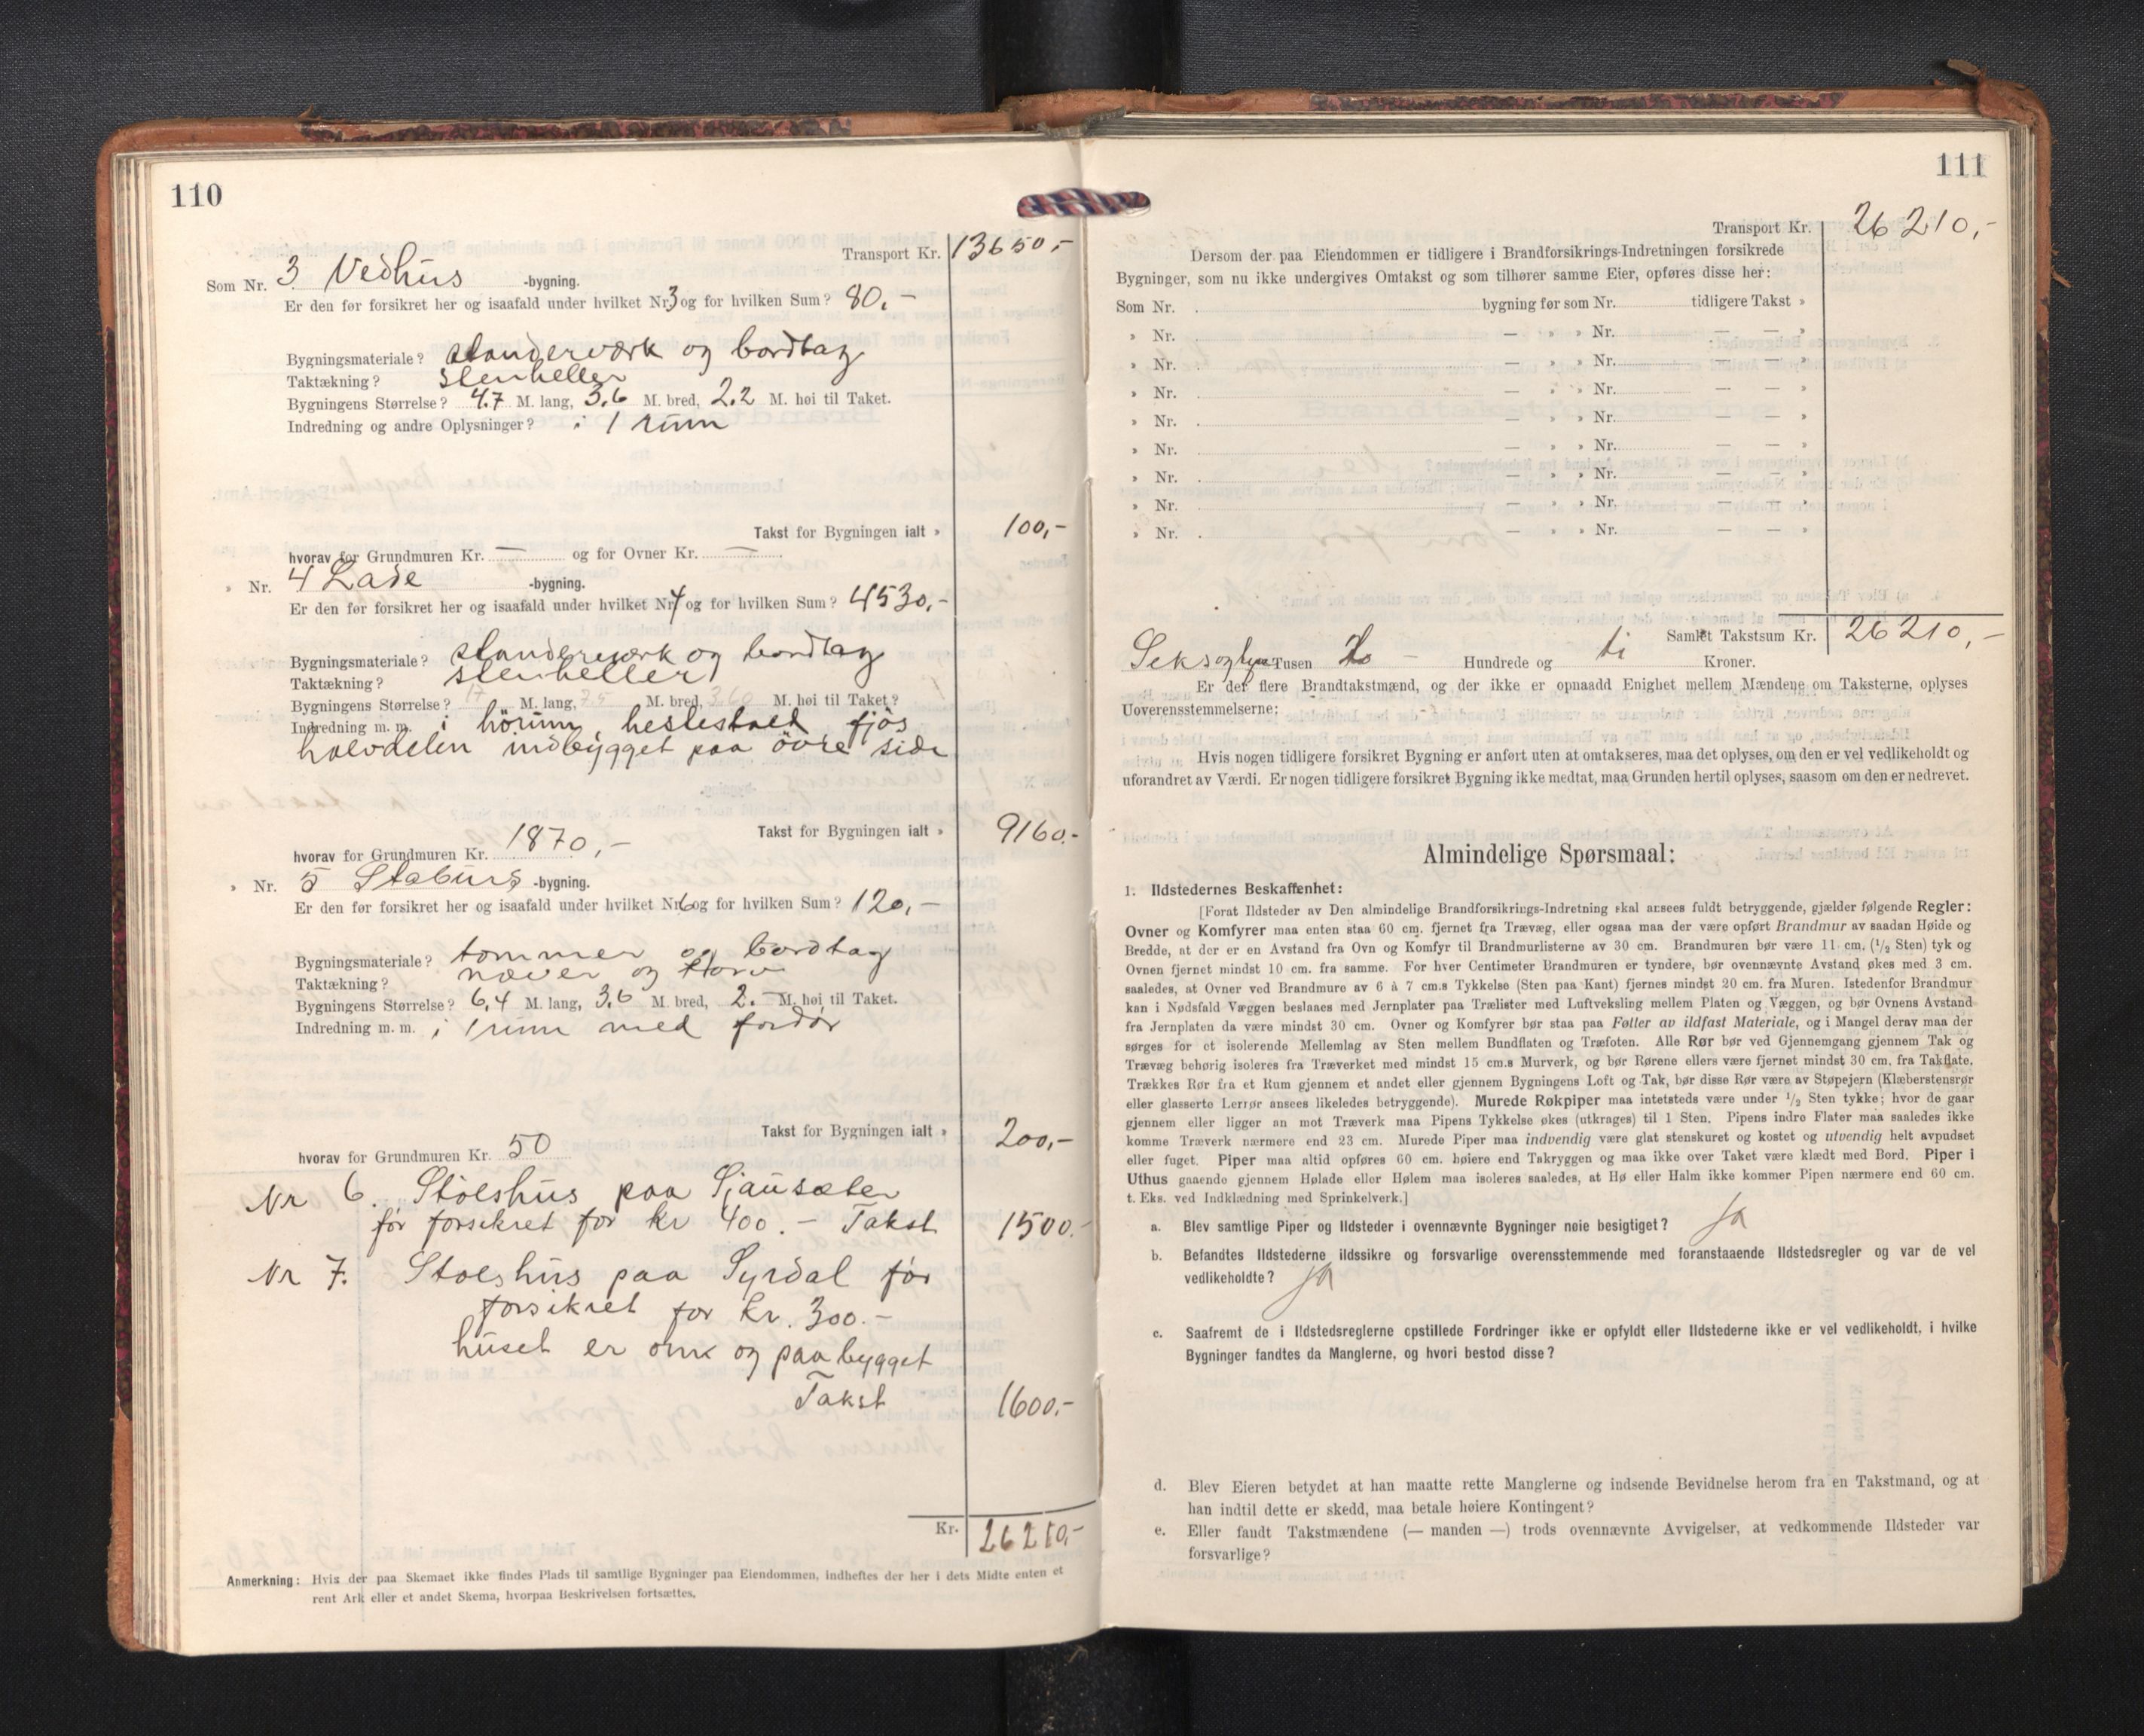 110
Transport Kr. 13650,-
Som Nr. 3 Vedhus -bygning.
Er den før forsikret her og isaafald under hvilket Nr. 3 og for hvilken Sum? 80,-
Bygningsmateriale? standerværk og bordtag
Taktækning? stenheller
Bygningens Størrelse? 4.7 M. lang, 3,6 M. bred, 2.2 M. høi til Taket.
Indredning og andre Oplysninger? i 1 rum
Takst for Bygningen ialt » 100,-
hvorav for Grundmuren Kr. — og for Ovner Kr. —
» Nr. 4 Lade -bygning.
Er den før forsikret her og isaafald under hvilket Nr. 4 og for hvilken Sum? 4530,-
Bygningsmateriale? standerværk og bordtag
Taktækning? stenheller
Bygningens Størrelse? 17 M. lang, 7.5 M. bred, 3.60 M. høi til Taket?
Indredning m. m. i hörum hestestald fjös
halvdelen indbygget paa övre side
Takst for Bygningen ialt » 9160.-
hvorav for Grundmuren Kr. 1870,-
» Nr. 5 Staburs -bygning.
Er den før forsikret her og isaafald under hvilket Nr. 6 og for hvilken Sum? 120,-
Bygningsmateriale? tømmer og bordtag
Taktækning? næver og torv
Bygningens Størrelse? 6,4 M. lang, 3,6 M. bred, 2.- M. høi til Taket.
Indredning m. m. i 1 rum med fordör
Takst for Bygningen ialt » 200,-
hvorav for Grundmuren Kr. 50
Nr 6. Stölshus paa Sjausæter
før forsikret for kr 400.- Takst 1500.-
Nr 7. Stølshus paa Syrdal før
forsikret for Kr. 300.-
huset er om og paabygget
Takst 1600.-
Kr. 26210,-
Anmerkning: Hvis der paa Skemaet ikke findes Plads til samtlige Bygninger paa Eiendommen, indheftes der her i dets Midte enten et
rent Ark eller et andet Skema, hvorpaa Beskrivelsen fortsættes.
111
Transport Kr. 26210,-
Dersom der paa Eiendommen er tidligere i Brandforsikrings-Indretningen forsikrede
Bygninger, som nu ikke undergives Omtakst og som tilhører samme Eier, opføres disse her:
Som Nr. bygning før som Nr. tidligere Takst »
» Nr. — » » Nr. — — »
» Nr. — » » Nr. — — »
» Nr. — » » Nr. — — »
» Nr. — » » Nr. — — »
» Nr. — » » Nr. — — »
» Nr. — » » Nr. — — »
» Nr. — » » Nr. — — »
» Nr. — » » Nr. — — »
Samlet Takstsum Kr. 26210,-
Seksogtyve Tusen To — Hundrede og ti Kroner.
Er det flere Brandtakstmænd, og der ikke er opnaadd Enighet mellem Mændene om Taksterne, oplyses
Uoverensstemmelserne:
Hvis nogen tidligere forsikret Bygning er anført uten at omtakseres, maa det oplyses, om den er vel vedlikeholdt og
uforandret av Værdi. Er nogen tidligere forsikret Bygning ikke medtat, maa Grunden hertil oplyses, saasom om den er nedrevet.
Almindelige Spørsmaal:
1. Ildstedernes Beskaffenhet:
[Forat Ildsteder av Den almindelige Brandforsikrings-Indretning skal ansees fuldt betryggende, gjælder følgende Regler:
Ovner og Komfyrer maa enten staa 60 cm. fjernet fra Trævæg, eller ogsaa maa der være opført Brandmur av saadan Høide og
Bredde, at der er en Avstand fra Ovn og Komfyr til Brandmurlisterne av 30 cm. Brandmuren bør være 11 cm. (1/2 Sten) tyk og
Ovnen fjernet mindst 10 cm. fra samme. For hver Centimeter Brandmuren er tyndere, bør ovennævnte Avstand økes med 3 cm.
saaledes, at Ovner ved Brandmure av 6 à 7 cm.s Tykkelse (Sten paa Kant) fjernes mindst 20 cm. fra Muren. Istedenfor Brandmur
kan i Nødsfald Væggen beslaaes med Jernplater paa Trælister med Luftveksling mellem Platen og Væggen, og bør Ovnens Avstand
fra Jernplaten da være mindst 30 cm. Ovner og Komfyrer bør staa paa Føtter av ildfast Materiale, og i Mangel derav maa der
sørges for et isolerende Mellemlag av Sten mellem Bundflaten og Træfoten. Alle Rør bør ved Gjennemgang gjennem Tak og
Trævæg behørig isoleres fra Træverket med mindst 15 cm.s Murverk, og bør Rørene ellers være fjernet mindst 30 cm. fra Takflate.
Trækkes Rør fra et Rum gjennem et andet eller gjennem Bygningens Loft og Tak, bør disse Rør være av Støpejern (Klæberstensrør
eller glasserte Lerrør ansees likeledes betryggende). Murede Røkpiper maa intetsteds være under 1/2 Sten tykke; hvor de gaar
gjennem eller ligger an mot Træverk maa Pipens Tykkelse økes (utkrages) til 1 Sten. Pipens indre Flater maa saaledes ikke
komme Træverk nærmere end 23 cm. Murede Piper maa indvendig være glat stenskuret og kostet og utvendig helt avpudset
eller fuget. Piper maa altid opføres 60 cm. høiere end Takryggen og maa ikke over Taket være klædt med Bord. Piper i
Uthus gaaende gjennem Hølade eller Hølem maa isoleres saaledes, at Hø eller Halm ikke kommer Pipen nærmere end 60 cm.
t. Eks. ved Indklædning med Sprinkelverk.]
a. Blev samtlige Piper og Ildsteder i ovennævnte Bygninger neie besigtiget? ja
b. Befandtes Ildstederne ildssikre og forsvarlige overensstemmende med foranstaaende Ildstedsregler og var de vel
vedlikeholdte? ja
c. Saafremt de i Ildstedsreglerne opstillede Fordringer ikke er opfyldt eller Ildstederne ikke er vel vedlikeholdt, i hvilke
Bygninger fandtes da Manglerne, og hvori bestod disse?
d. Blev Eieren betydet at han maatte rette Manglerne og indsende Bevidnelse herom fra en Takstmand, og at
han indtil dette er skedd, maa betale høiere Kontingent?
e. Eller fandt Takstmændene (— manden —) trods ovennævnte Avvigelser, at vedkommende Ildsteder var
forsvarlige?